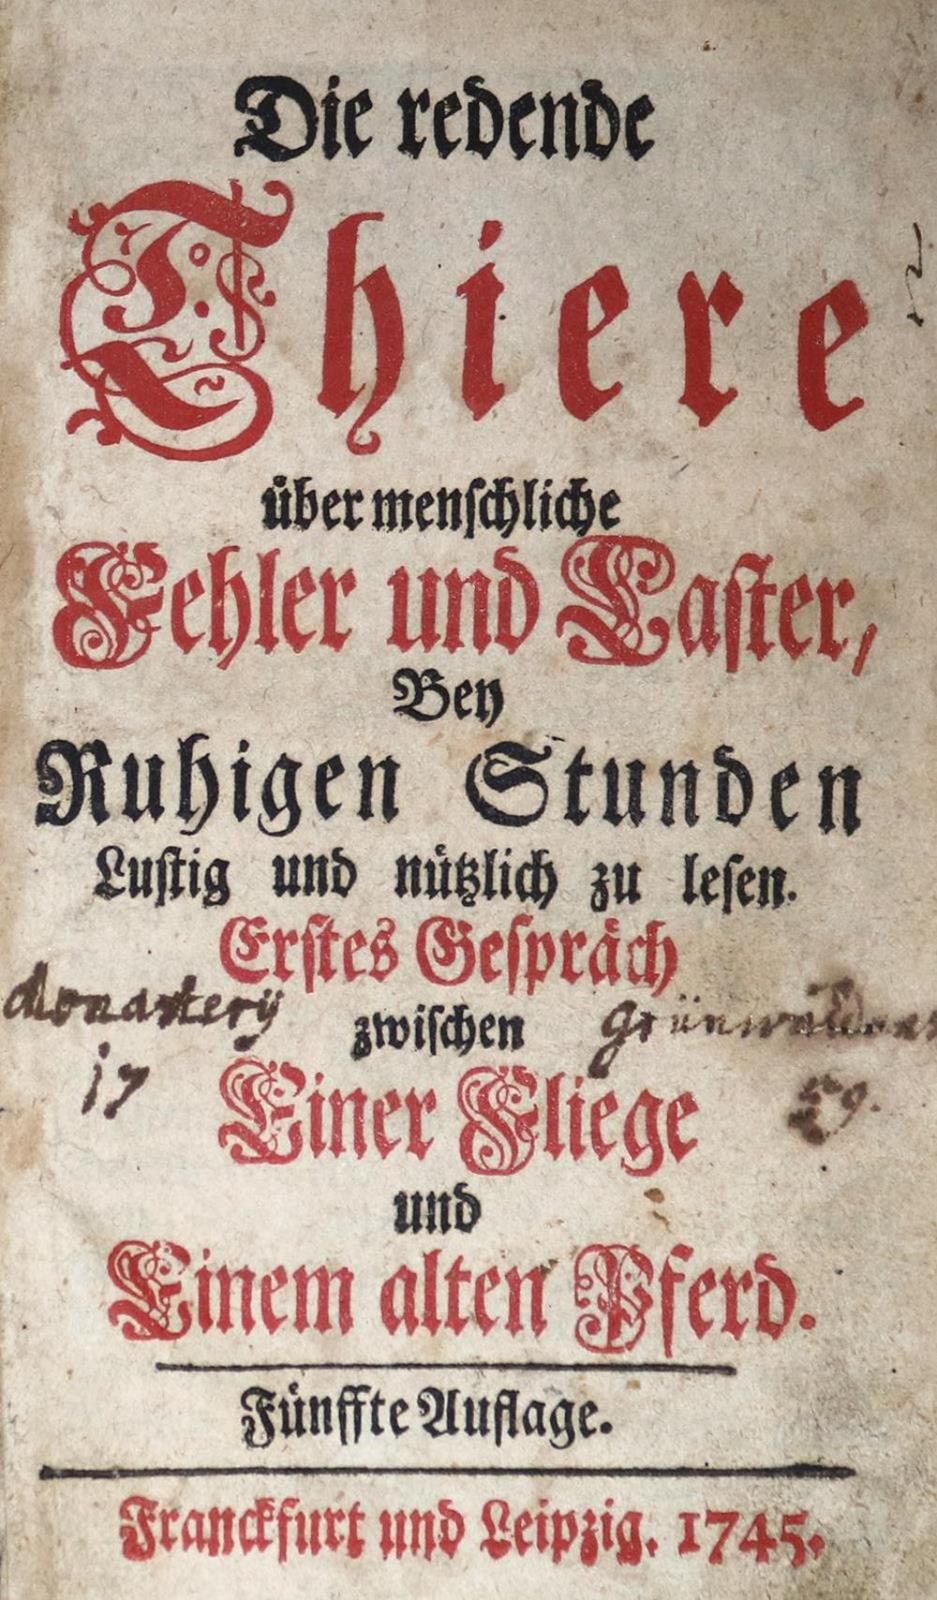 Die redende
Thiere
über menschliche
Fehler und Laster,
Bey
Ruhigen Stunden
Lustig und nützlich zu lesen.
Erstes Gespräch
Monasterij
zwischen
17
59.
Einer Fliege
und
Einem alten Pferd.
Fünffte Auflage.
Franckfurt und Leipzig. 1745.